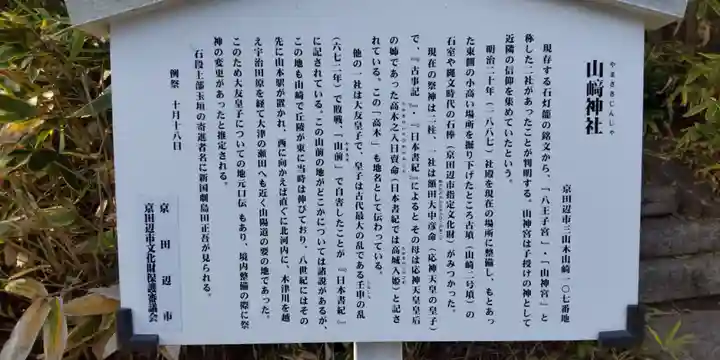 やまさきじんじゃ
山﨑神社
京田辺市三山木山崎一〇七番地
現存する石灯籠の銘文から、「八王子宮」・「山神宮」と
称した二社があったことが判明する。山神宮は子授けの神として
近隣の信仰を集めていたという。
明治二十年（一八八七）社殿を現在の場所に整備し、もとあっ
た東側の小高い場所を掘り下げたところ古墳（山崎二号墳）の
石室や縄文時代の石棒（京田辺市指定文化財）がみつかった。
現在の祭神は二柱、一社は額田大中彦命（応神天皇の皇子）
で、『古事記』・『日本書紀』によるとその母は応神天皇皇后
の姉であった高木之入日賣命（日本書紀では高城入姫）と記さ
れている。この「高木」も地名として伝わっている。
他の一社は大友皇子で、皇子は古代最大の乱である壬申の乱
（六七二年）で敗戦、「山前」で自害したことが『日本書紀』
に記されている。この山前の地がどこかについては諸説があるが、
この地も山崎で丘陵が東に当時は伸びており、八世紀にはその
先に山本駅が置かれ、西に向かえば直ぐに北河内に、木津川を越
え宇治田原を経て大津の瀬田へも近く山陽道の要の地であった。
このため大友皇子についての地元口伝もあり、境内整備の際に祭
神の変更があったと推定される。
石段上部玉垣の寄進者名に新国劇島田正吾が見られる。
例祭　十月十八日
京田辺市
京田辺市文化財保護審議会